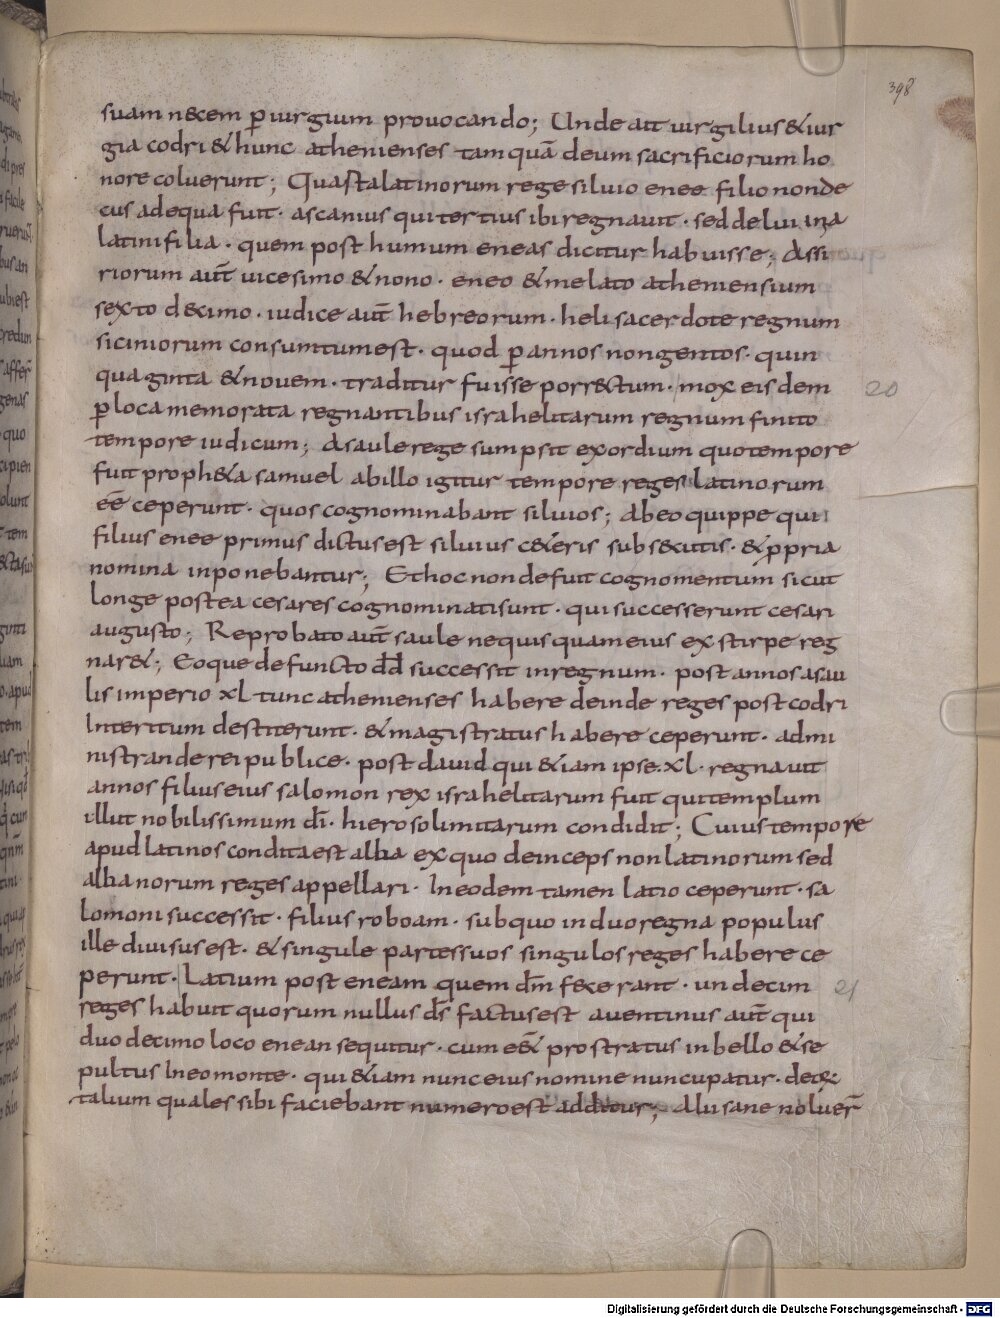 398
suam necem p̱ iurgium prouocando; Unde ait uirgilius & iur
gia codri & hunc athenienses tamquā deum sacrificiorum ho
nore coluerunt; Quarta latinorum rege siluio eneę filio non de
cus adequa fuit · ascanius qui tertius ibi regnauit · sed de luiuina
latini filia · quem posthumum eneas dicitur habuisse; Assi
riorum aut̄ uicesimo & nono · eneo & melato atheniensium
sexto decimo · iudice aut̄ hebreorum · heli sacerdote regnum
siciniorum consumtum est · quod p̱ annos nongentos · quin
quaginta & nouem · traditur fuisse porrectum · mox eisdem 20
p̱ loca memorata regnantibus israhelitarum regnum finito
tempore iudicum; A saule rege sumpsit exordium quo tempore
fuit proph&a samuel ab illo igitur tempore reges latinorum
eē ceperunt · quos cognominabant siluios; Ab eo quippe qui
filius eneę primus dictus est siluius c&eris subsecutis · & p̱pria
nomina inponebantur; Et hoc non defuit cognomentum sicut
longe postea cesares cognominati sunt · qui successerunt cesari
augusto; Reprobato aut̄ saule nequisquam eius ex stirpe reg
nar&; Eoque defuncto dd̄ successit in regnum · post annos a sau
lis imperio xl tunc athenienses habere deinde reges post codri
Interitum destiterunt · & magistratus habere ceperunt · admi
nistrande rei publice · post dauid qui &iam ipse · xl · regnauit
annos filius eius salomon rex israhelitarum fuit qui templum
illut nobilissimum dī · hierosolimitarum condidit; Cuius tempore
apud latinos condita est alba ex quo deinceps non latinorum sed
albanorum reges appellari · In eodem tamen latio ceperunt · sa
lomoni successit · filius roboam · sub quo in duo regna populus
ille diuisus est · & singule partes suos singulos reges habere ce
perunt · Latium post eneam quem dm̄ fecerant · undecim 21
reges habuit quorum nullus ds̄ factus est auentinus aut̄ qui
duodecimo loco enean sequitur · cum ee& prostratus in bello & se
pultus In eo monte · qui &iam nunc eius nomine nuncupatur · deor
talium quales sibi faciebant numero est additur; Alii sane noluer̄
Digitalisierung gefördert durch die Deutsche Forschungsgemeinschaft - DFG